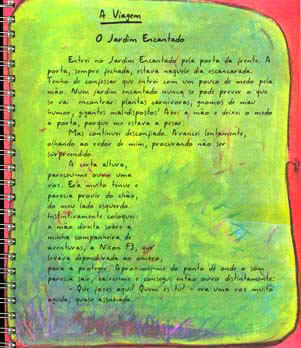 A Viagem
O Jardim Encantado
Entrei no Jardim Encantado pela porta da frente. A
porta, sempre fechada, estava naquele dia escancarada.
Tenho de confessar que entrei com um pouco de medo pela
mão. Num jardim encantado nunca se pode prever o que
se vai encontrar: plantas carnívoras, gnomos de mau
humor, gigantes maldispostos. Abri a mão e deixei o medo
à porta, porque me estava a pesar.
Mas continuei desconfiado. Avancei lentamente,
olhando ao redor de mim, procurando não ser
surpreendido.
A certa altura,
pareceu-me ouvir uma
voz. Era muito ténue e
parecia provir do chão,
do meu lado esquerdo.
Instintivamente coloquei
a mão direita sobre a
minha companheira de
aventuras, a Nikon F3, que
levava dependurada ao
para a proteger. Aproximei-me do ponto de onde o som
parecia sair, baixei-me e consegui então ouvir distintamente:
- Que fazes aqui? Quem és tu? - era uma voz muito
aguda, quase assobiada.